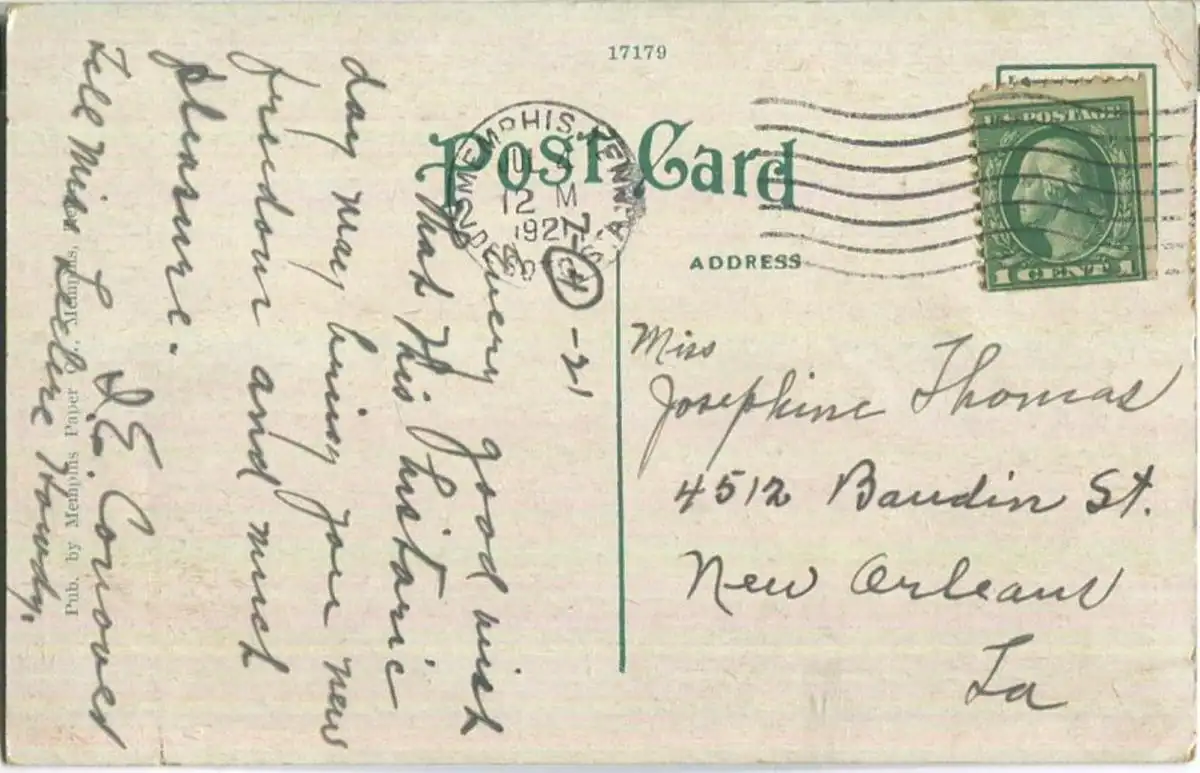 17179
Post Card
MEMPHIS, TENN.
JUL 4
12 M
1921
U.S. POSTAGE
1 CENT 1
ADDRESS
Miss
Josephine Thomas
4512 Baudin St.
New Orleans
La
7-4-21
Every good wish
that this historic
day may bring you new
freedom and much
pleasure.
I. E. Conover
Tell Miss Howdy.
Pub. by Memphis Paper Memphis,